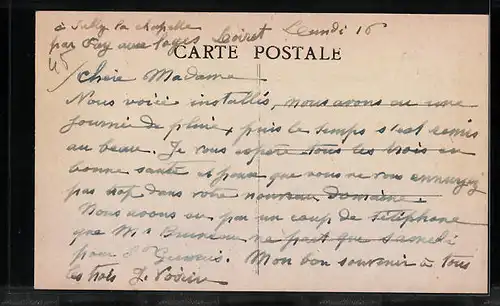 à Sully la Chapelle Lundi 16
par Fay aux loges Loiret
CARTE POSTALE
45
Chère Madame
Nous voici installés, nous avons eu une
journée de pluie, puis le temps s'est remis
au beau. Je vous espère tous les trois en
bonne santé et pense que vous ne vous ennuyez
pas trop dans votre nouveau domaine.
Nous avons su par un coup de téléphone
que Mr Bruneau ne part que samedi
pour St Gervais. Mon bon souvenir à tous
les trois J. Voisin